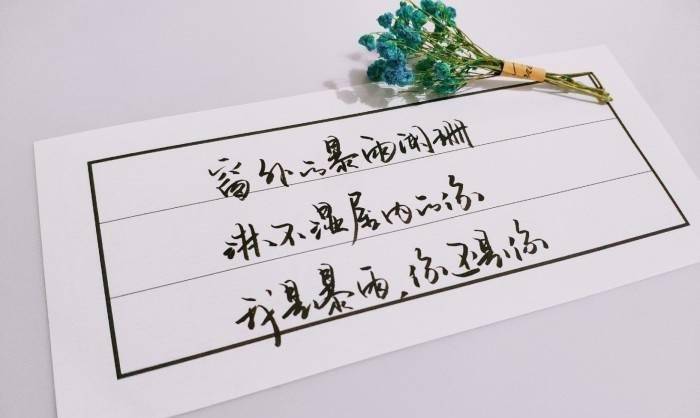 窗外的暴雨阑珊
淋不湿屋内的你
我是暴雨、你还是你